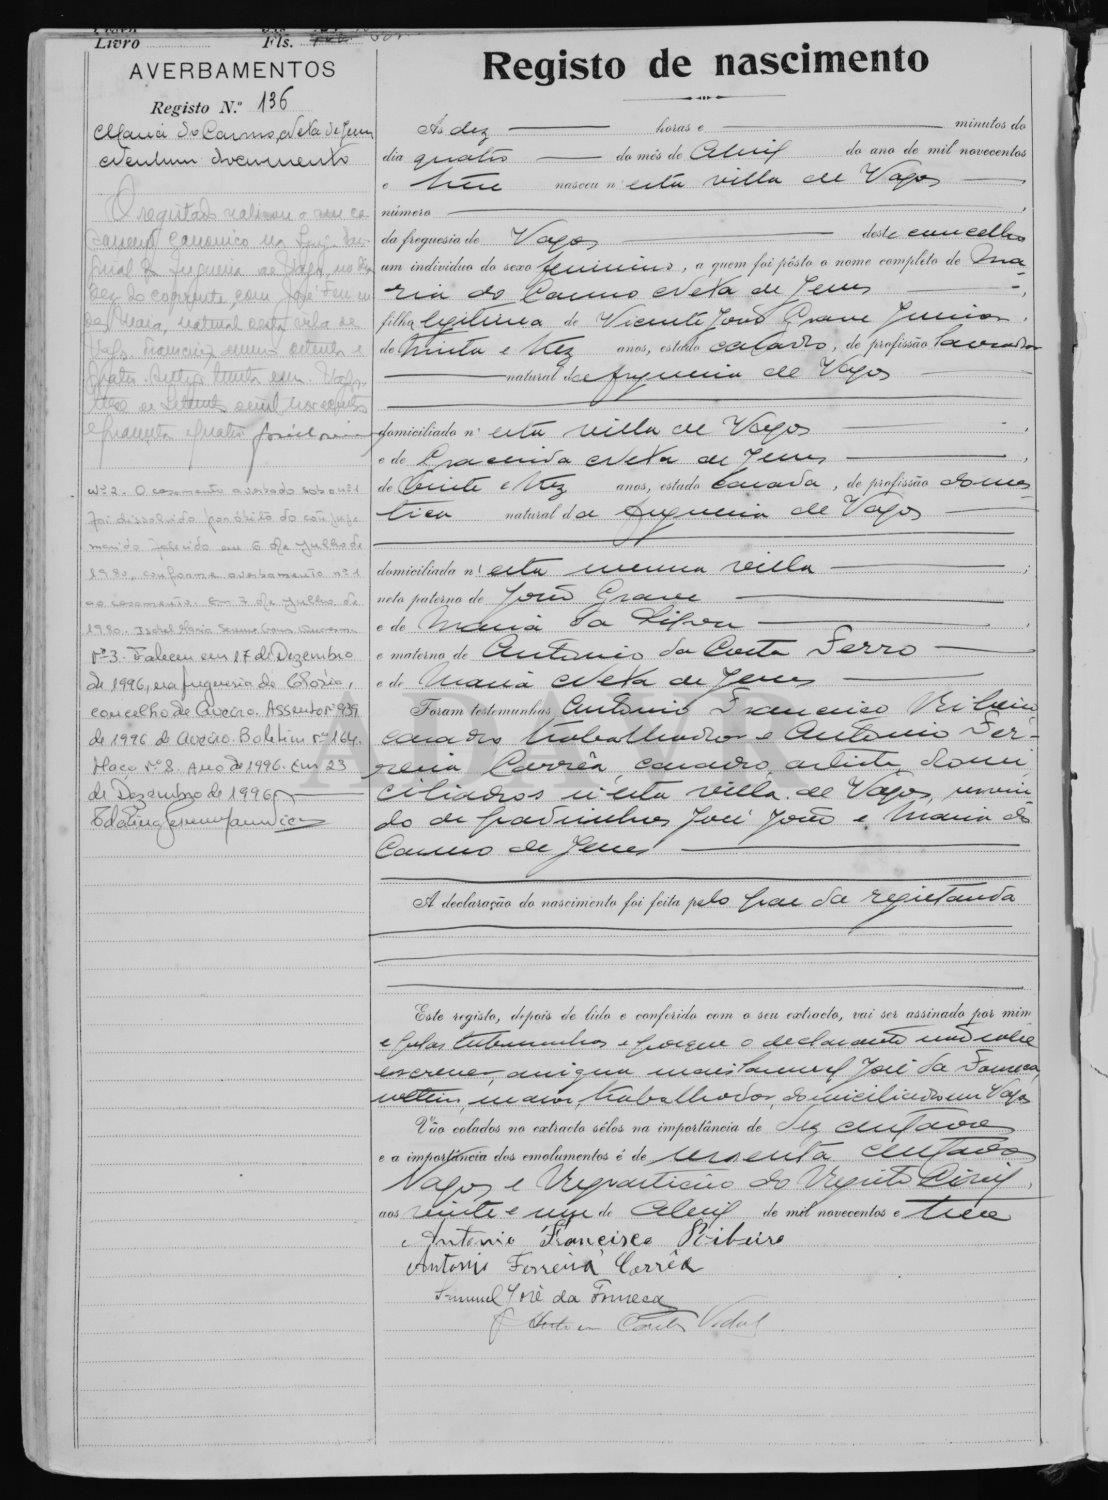 Livro Fls.
AVERBAMENTOS
Registo N.º 136
Maria do Carmo Neta de Jesus
Nenhum documento
O registado realizou o seu ca-
samento canonico na
de Vagos, no dia
dez do corrente com José
da Maia, natural desta vila de
Vagos.
de Setembro de mil novecentos
e quarenta e quatro
Nº 2. O casamento averbado sob o nº 1
foi dissolvido por óbito do conjuge
marido falecido em 6 de Julho de
1980, conforme averbamento nº 1
ao casamento. Em 7 de Julho de
1980. Isabel Maria
Nº 3. Faleceu em 17 de Dezembro
de 1996, na freguesia da Glória,
concelho de Aveiro. Assento nº 939
de 1996 de Aveiro. Boletim nº 164.
Maço nº 8. Ano de 1996. Em 23
de Dezembro de 1996
Registo de nascimento
Ás dez horas e minutos do
dia quatro do mês de Abril do ano de mil novecentos
e treze nasceu n'esta villa de Vagos
número
da freguesia de Vagos deste concelho
um individuo do sexo feminino, a quem foi pôsto o nome completo de Ma-
ria do Carmo Neta de Jesus
filha legitima de Vicente João Grave Junior
de trinta e trez anos, estado casado, de profissão lavrador
natural da freguesia de Vagos
domiciliado n'esta villa de Vagos
e de Gracinda Neta de Jesus
de vinte e trez anos, estado casada, de profissão domes-
tica natural da freguesia de Vagos
domiciliada n'esta mesma villa
neto paterno de João Grave
e de Maria da
e materno de Antonio da Costa Ferro
e de Maria Neta de Jesus
Foram testemunhas Antonio Francisco Ribeiro
casado trabalhador e Antonio Fer-
reira Corrêa, casado, artista, domi-
ciliados n'esta villa de Vagos, servin-
do de padrinhos José João e Maria do
Carmo de Jesus
A declaração do nascimento foi feita pelo pae da registanda
Este registo, depois de lido e conferido com o seu extracto, vai ser assinado por mim
e pelas testemunhas e porque o declarante não sabe
escrever, assigna mais Samuel José da Fonseca,
solteiro, maior, trabalhador, domiciliado em Vagos
Vão colados no extracto sêlos na importância de dez centavos
e a importância dos emolumentos é de sessenta centavos
Vagos e Repartição do Registo Civil,
aos vinte e um de Abril de mil novecentos e treze
Antonio Francisco Ribeiro
Antonio Ferreira Corrêa
Samuel José da Fonseca
Vidal
ADAVR